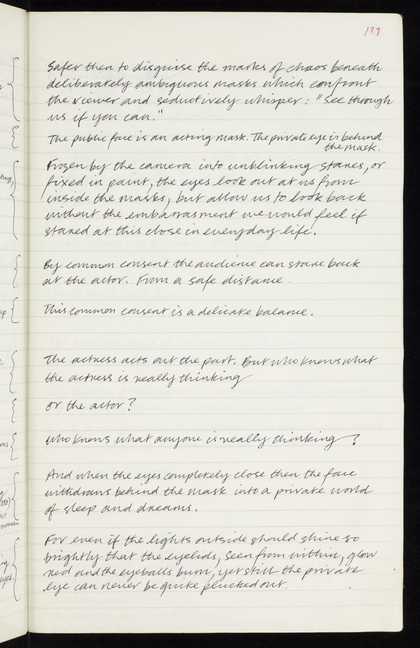 137
Safer then to disguise the marks of chaos beneath
deliberately ambiguous masks which confront
the viewer and seductively whisper: "See through
us if you can."
The public face is an acting mask. The private eye is behind
the mask.
Frozen by the camera into unblinking stares, or
fixed in paint, the eyes look out at us from
inside the masks, but allow us to look back
without the embarrasment we would feel if
stared at this close in everyday life.
By common consent the audience can stare back
at the actor. From a safe distance.
This common consent is a delicate balance.
The actress acts out the part. But who knows what
the actress is really thinking
or the actor?
Who knows what anyone is really thinking?
And when the eyes completely close then the face
withdraws behind the mask into a private world
of sleep and dreams.
For even if the lights outside should shine so
brightly that the eyelids, seen from within, glow
red and the eyeballs burn, yet still the private
eye can never be quite plucked out.